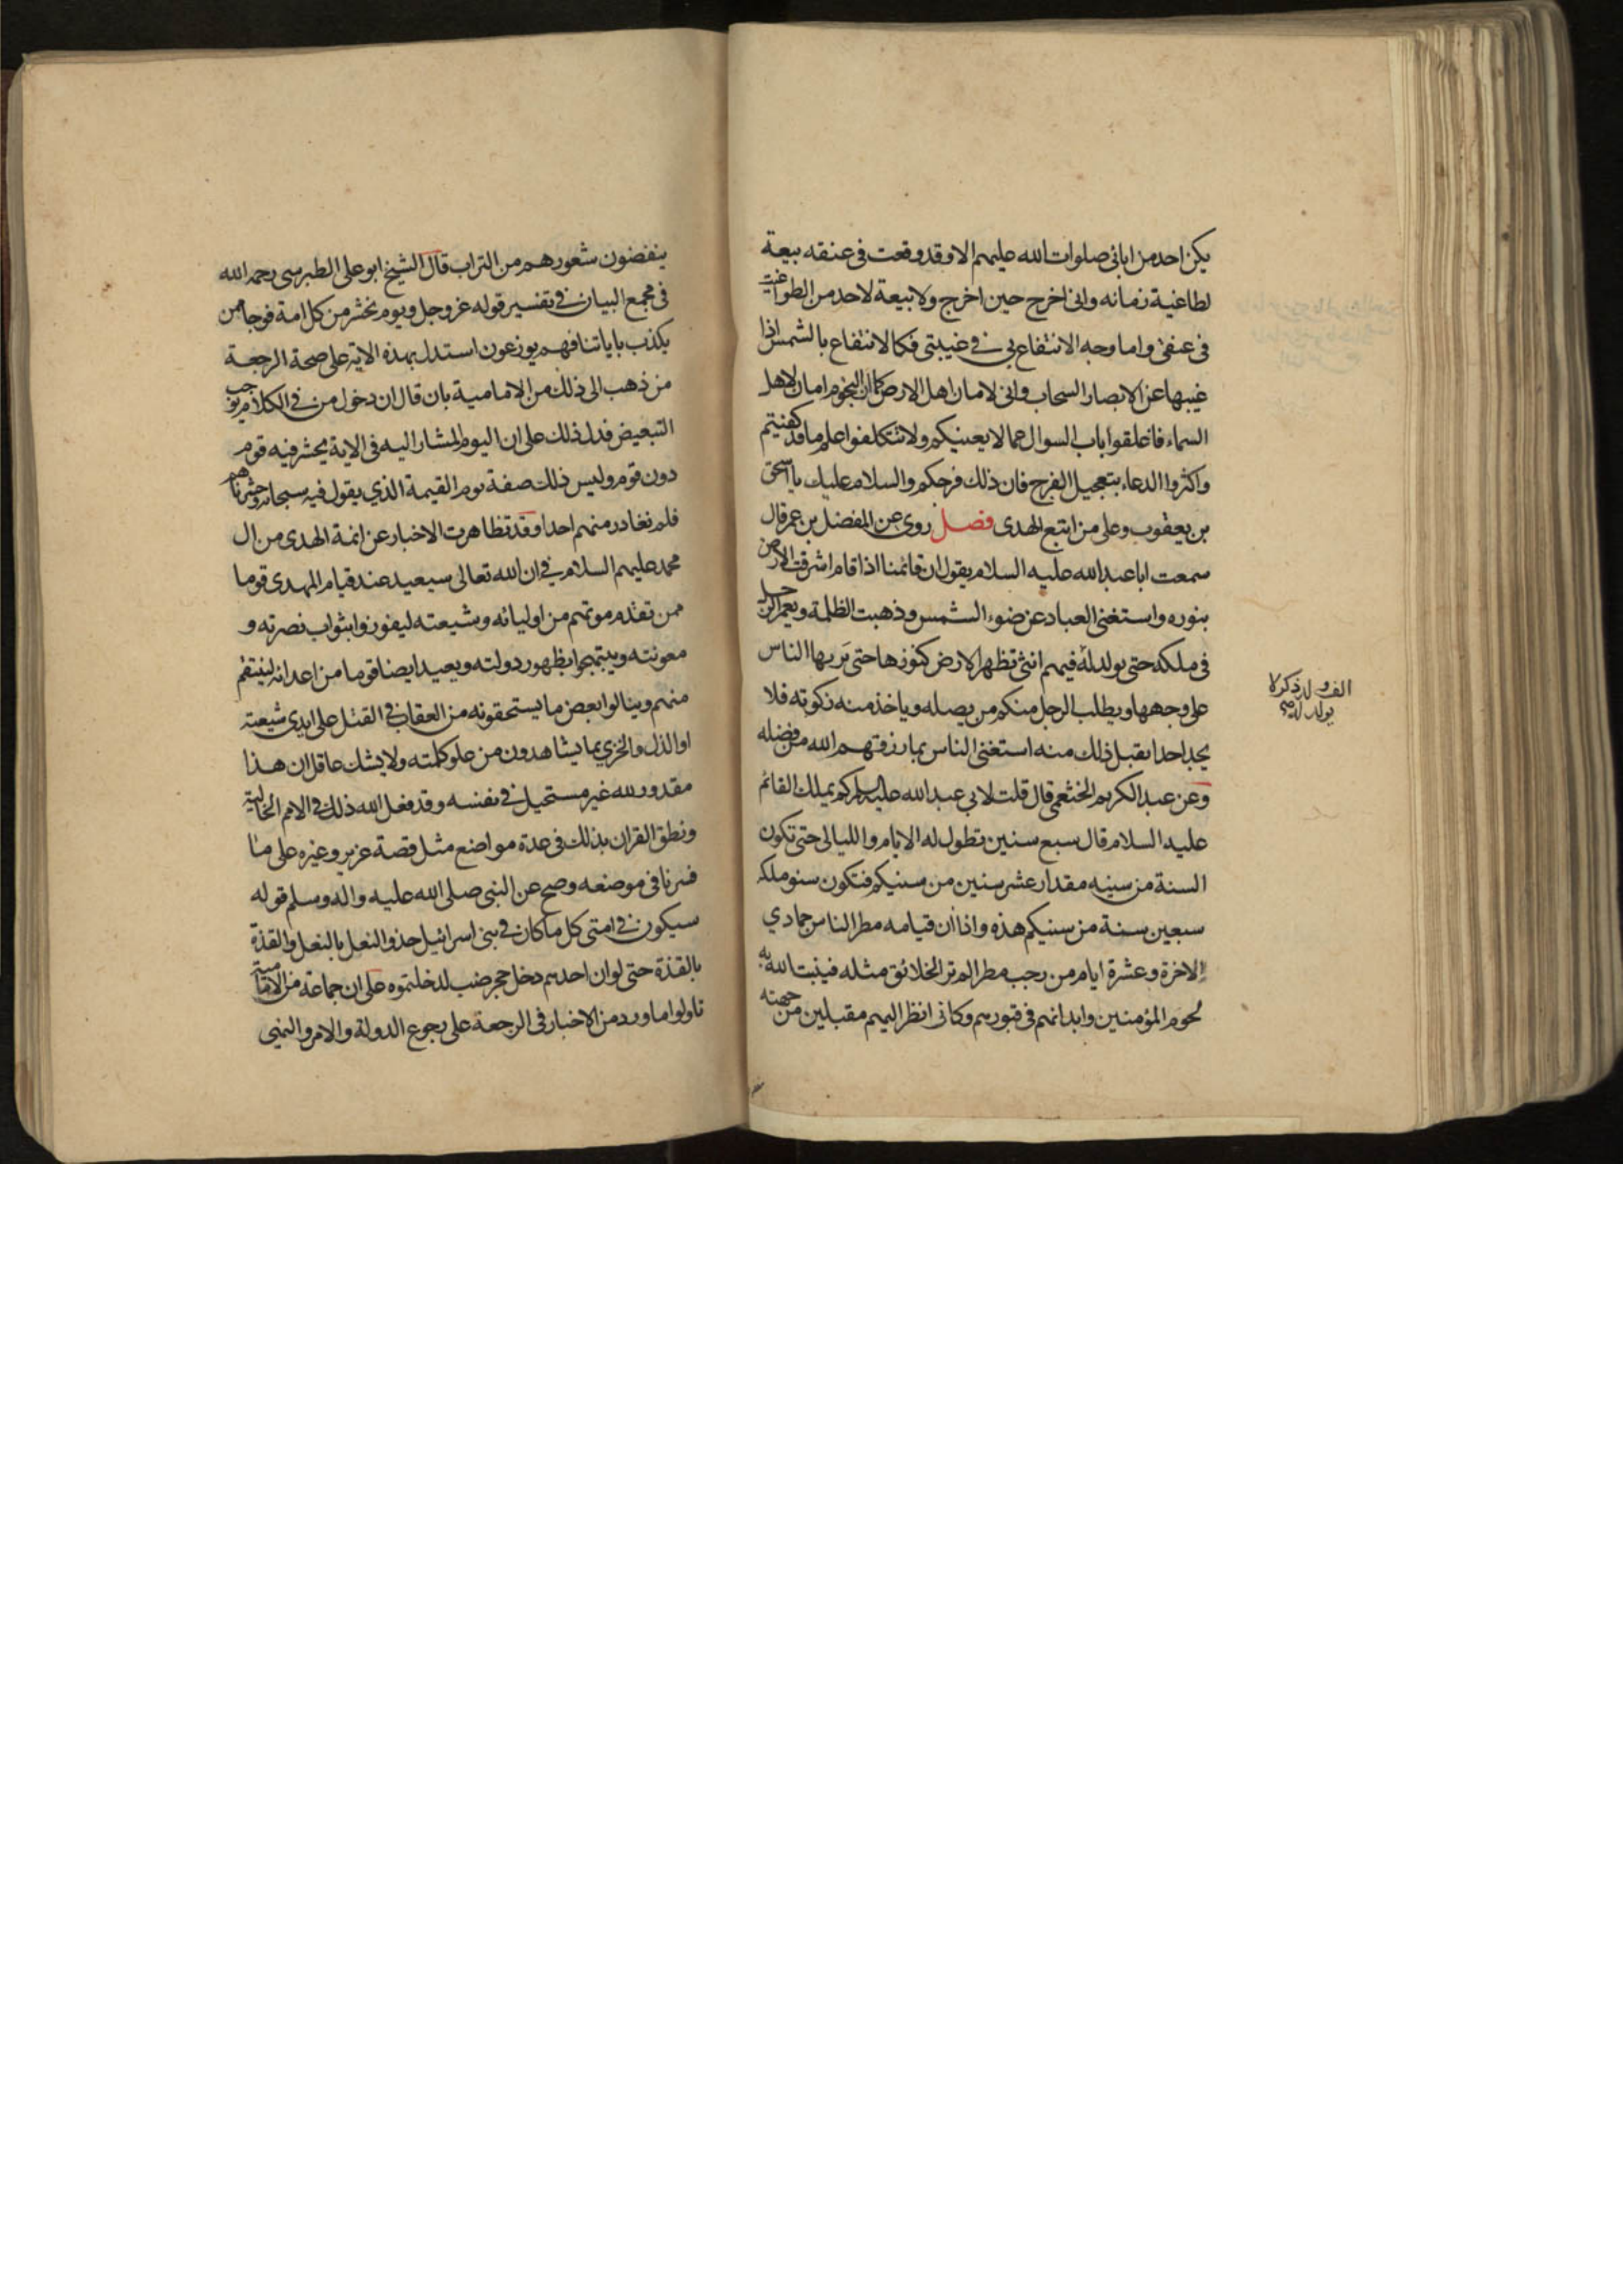 يكن احد من ابائى صلوات الله عليهم الا وقد وقعت فى عنقه بيعة
لطاغية زمانه وانى اخرج حين اخرج ولا بيعة لاحد من الطواغيت
فى عنقى واما وجه الانتفاع بى فى غيبتى فكالانتفاع بالشمس اذا
غيبها عن الابصار السحاب وانى لامان اهل الارض كما ان النجوم امان لاهل
السماء فاغلقوا باب السوال عما لا يعينكم ولا تتكلفوا علم ما قد كفيتم
واكثروا الدعاء بتعجيل الفرج فان ذلك فرجكم والسلام عليك يا اسحق
بن يعقوب وعلى من اتبع الهدى فصل روى عن المفضل بن عمر قال
سمعت ابا عبد الله عليه السلام يقول ان قائمنا اذا قام اشرقت الارض
بنوره واستغنى العباد عن ضوء الشمس وذهبت الظلمة ويعمر الرجل
فى ملكه حتى يولد له فيهم انثى تظهر الارض كنوزها حتى تربها الناس
على وجهها ويطلب الرجل منكم من يصله وياخذ منه زكوته فلا
يجد احدا يقبل ذلك منه استغنى الناس بما رزقهم الله من فضله
وعن عبد الكريم الخثعمى قال قلت لابى عبد الله عليه السلام كم يملك القائم
عليه السلام قال سبع سنين تطول له الايام والليالى حتى تكون
السنة من سينه مقدار عشر سنين من سنيكم فتكون سنو ملكه
سبعين سنة من سنيكم هذه واذا ان قيامه مطر الناس جمادي
الاخرة وعشرة ايام من رجب مطرا لم تر الخلائق مثله فينبت الله به
لحوم المؤمنين وابدانهم فى قبورهم وكانى انظر اليهم مقبلين من جهته
الف ولد ذكر لا
يولد له
ينفضون شعورهم من التراب قال الشيخ ابو على الطبرسى رحمه الله
فى مجمع البيان فى تفسير قوله عز وجل ويوم نحشر من كل امة فوجا ممن
يكذب باياتنا فهم يوزعون استدل بهذه الاية على صحة الرجعة
من ذهب الى ذلك من الامامية بان قال ان دخول من فى الكلام يوجب
التبعيض فدل ذلك على ان اليوم المشار اليه فى الاية يحشر فيه قوم
دون قوم وليس ذلك صفة يوم القيمة الذي يقول فيه سبحانه وحشرناهم
فلم نغادر منهم احدا وقد تظاهرت الاخبار عن ائمة الهدى من ال
محمد عليهم السلام فى ان الله تعالى سيعيد عند قيام المهدى قوما
ممن تقدم موتهم من اوليائه وشيعته ليفوزوا بثواب نصرته و
معونته ويبتهجوا بظهور دولته ويعيد ايضا قوما من اعدائه لينتقم
منهم وينالوا بعض ما يستحقونه من العقاب فى القتل على ايدى شيعته
او الذل والخزي بما يشاهدون من علو كلمته ولا يشك عاقل ان هذا
مقدور لله غير مستحيل فى نفسه وقد فعل الله ذلك فى الامم الخالية
ونطق القران بذلك فى عدة مواضع مثل قصة عزير وغيره على ما
فسرنا فى موضعه وصح عن النبى صلى الله عليه واله وسلم قوله
سيكون فى امتى كل ما كان فى بنى اسرائيل حذو النعل بالنعل والقذة
بالقذة حتى لو ان احدهم دخل حجر ضب لدخلتموه على ان جماعة من الامامية
تاولوا ما ورد من الاخبار فى الرجعة على رجوع الدولة والامر والنهى